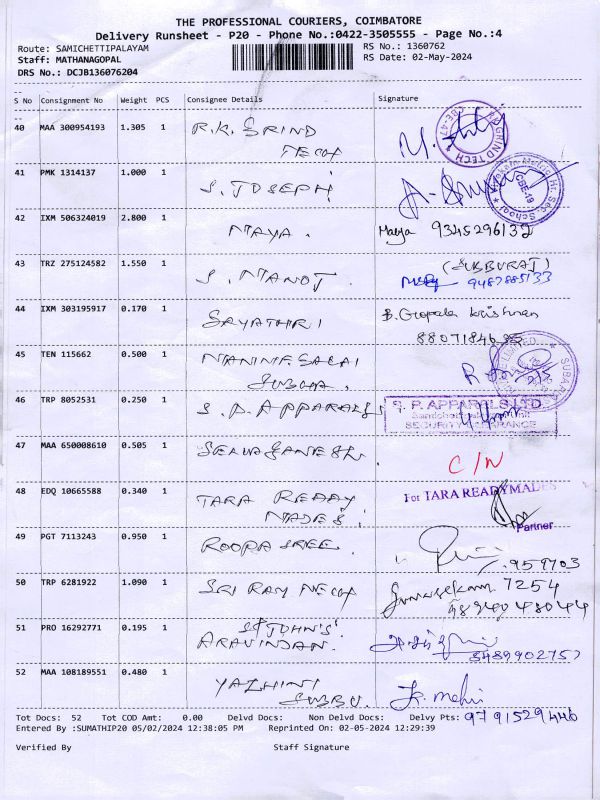 THE PROFESSIONAL COURIERS, COIMBATORE
Delivery Runsheet - P20 - Phone No.:0422-3505555 - Page No.:4
Route: SAMICHETTIPALAYAM
Staff: MATHANAGOPAL
DRS No.: DCJB136076204
RS No.: 1360762
RS Date: 02-May-2024
S No Consignment No Weight PCS Consignee Details Signature
40 MAA 300954193 1.305 1 R.K. GRIND
TECH
41 PMK 1314137 1.000 1 S. JOSEPH
42 IXM 506324019 2.800 1 MAYA. Maya 9345296132
43 TRZ 275124582 1.550 1 S. MANOJ. (SUBBURAJ)
9487885133
44 IXM 303195917 0.170 1 GAYATHRI B. Gopala krishnan
45 TEN 115662 0.500 1
46 TRP 8052531 0.250 1 S. P. APPARALS S. P. APPARALS LTD.
SECURITY CLEARANCE
47 MAA 650008610 0.505 1 SELVAGANESH. C/N
48 EDQ 10665588 0.340 1 TARA READY
MADES. For TARA READYMADES
Partner
49 PGT 7113243 0.950 1 ROOPA SREE. 959703
50 TRP 6281922 1.090 1 SRI RAM 7254
51 PRO 16292771 0.195 1 ST JOHN'S
ARAVINDAN. 8489902757
52 MAA 108189551 0.480 1 YAZHINI
SUBBU.
9791529446
Tot Docs: 52 Tot COD Amt: 0.00 Delvd Docs: Non Delvd Docs: Delvy Pts:
Entered By :SUMATHIP20 05/02/2024 12:38:05 PM Reprinted On: 02-05-2024 12:29:39
Verified By Staff Signature